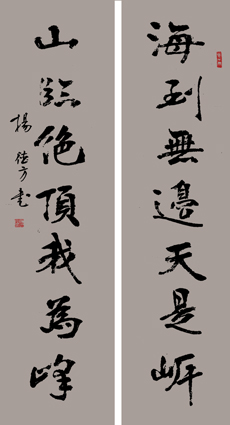 海到無邊天是岍
山臨絕頂我為峰
楊德方書